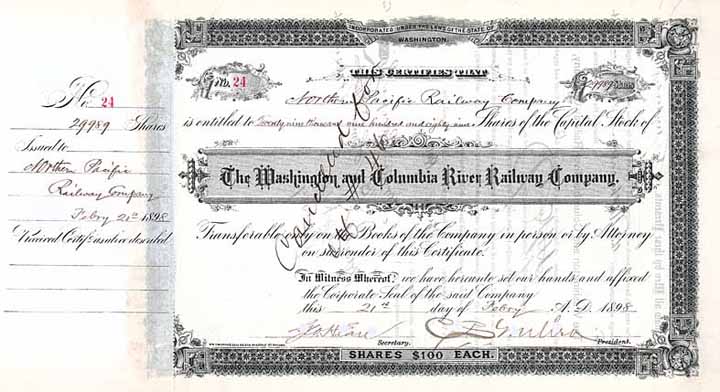 No. 24
29989 Shares
Issued to
Northern Pacific
Railway Company
Febry 21st 1898
Received Certif. as above described
INCORPORATED UNDER THE LAWS OF THE STATE OF
WASHINGTON.
THIS CERTIFIES THAT
No. 24
29989 Shares
Northern Pacific Railway Company
is entitled to Twenty nine thousand nine hundred and eighty nine Shares of the Capital Stock of
The Washington and Columbia River Railway Company.
Transferable only on the Books of the Company in person or by Attorney
on surrender of this Certificate.
In Witness Whereof, we have hereunto set our hands and affixed
the Corporate Seal of the said Company
this 21st day of Febry A.D. 1898
Secretary.
President.
SHARES $100 EACH.